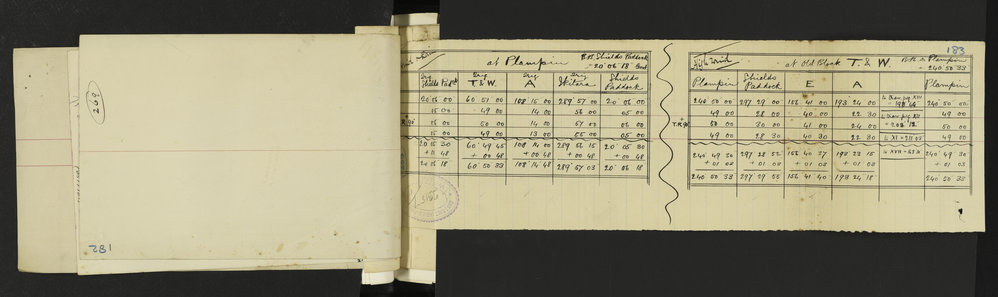 269
281
183
at Plampin
B.B. Shields Paddock
20° 06' 18
Trig T. & W.
Trig A
Trig Skitara
Shields Paddock
20 15 00 60 51 00 108 15 00 289 57 00 20 06 00
15 00 49 00 14 00 56 00 05 00
T.R. 90° 50 00 14 00 57 00 06 00
15 00 49 00 13 00 55 00 05 00
20 15 30 60 49 45 108 14 00 289 56 15 20 05 30
+ 11 48 + 00 48 + 00 48 + 00 48 + 00 48
20 15 18 60 50 33 108 14 48 289 57 03 20 06 18
at Old Block T. & W.
B.B. is Plampin
240 50 33
Plampin
Shields Paddock
E
A
Plampin
240 50 00 297 29 00 156 41 00 193 24 00 240 50 00
49 00 28 00 40 00 22 30 49 00
T.R. 90° 50 00 30 00 41 00 24 00 50 00
49 00 28 30 40 30 22 30 49 00
240 49 30 297 28 52 156 40 37 193 23 15 240 49 30
+ 01 03 + 01 03 + 01 03 + 01 03 + 01 03
240 50 33 297 29 55 156 41 40 193 24 18 240 50 33